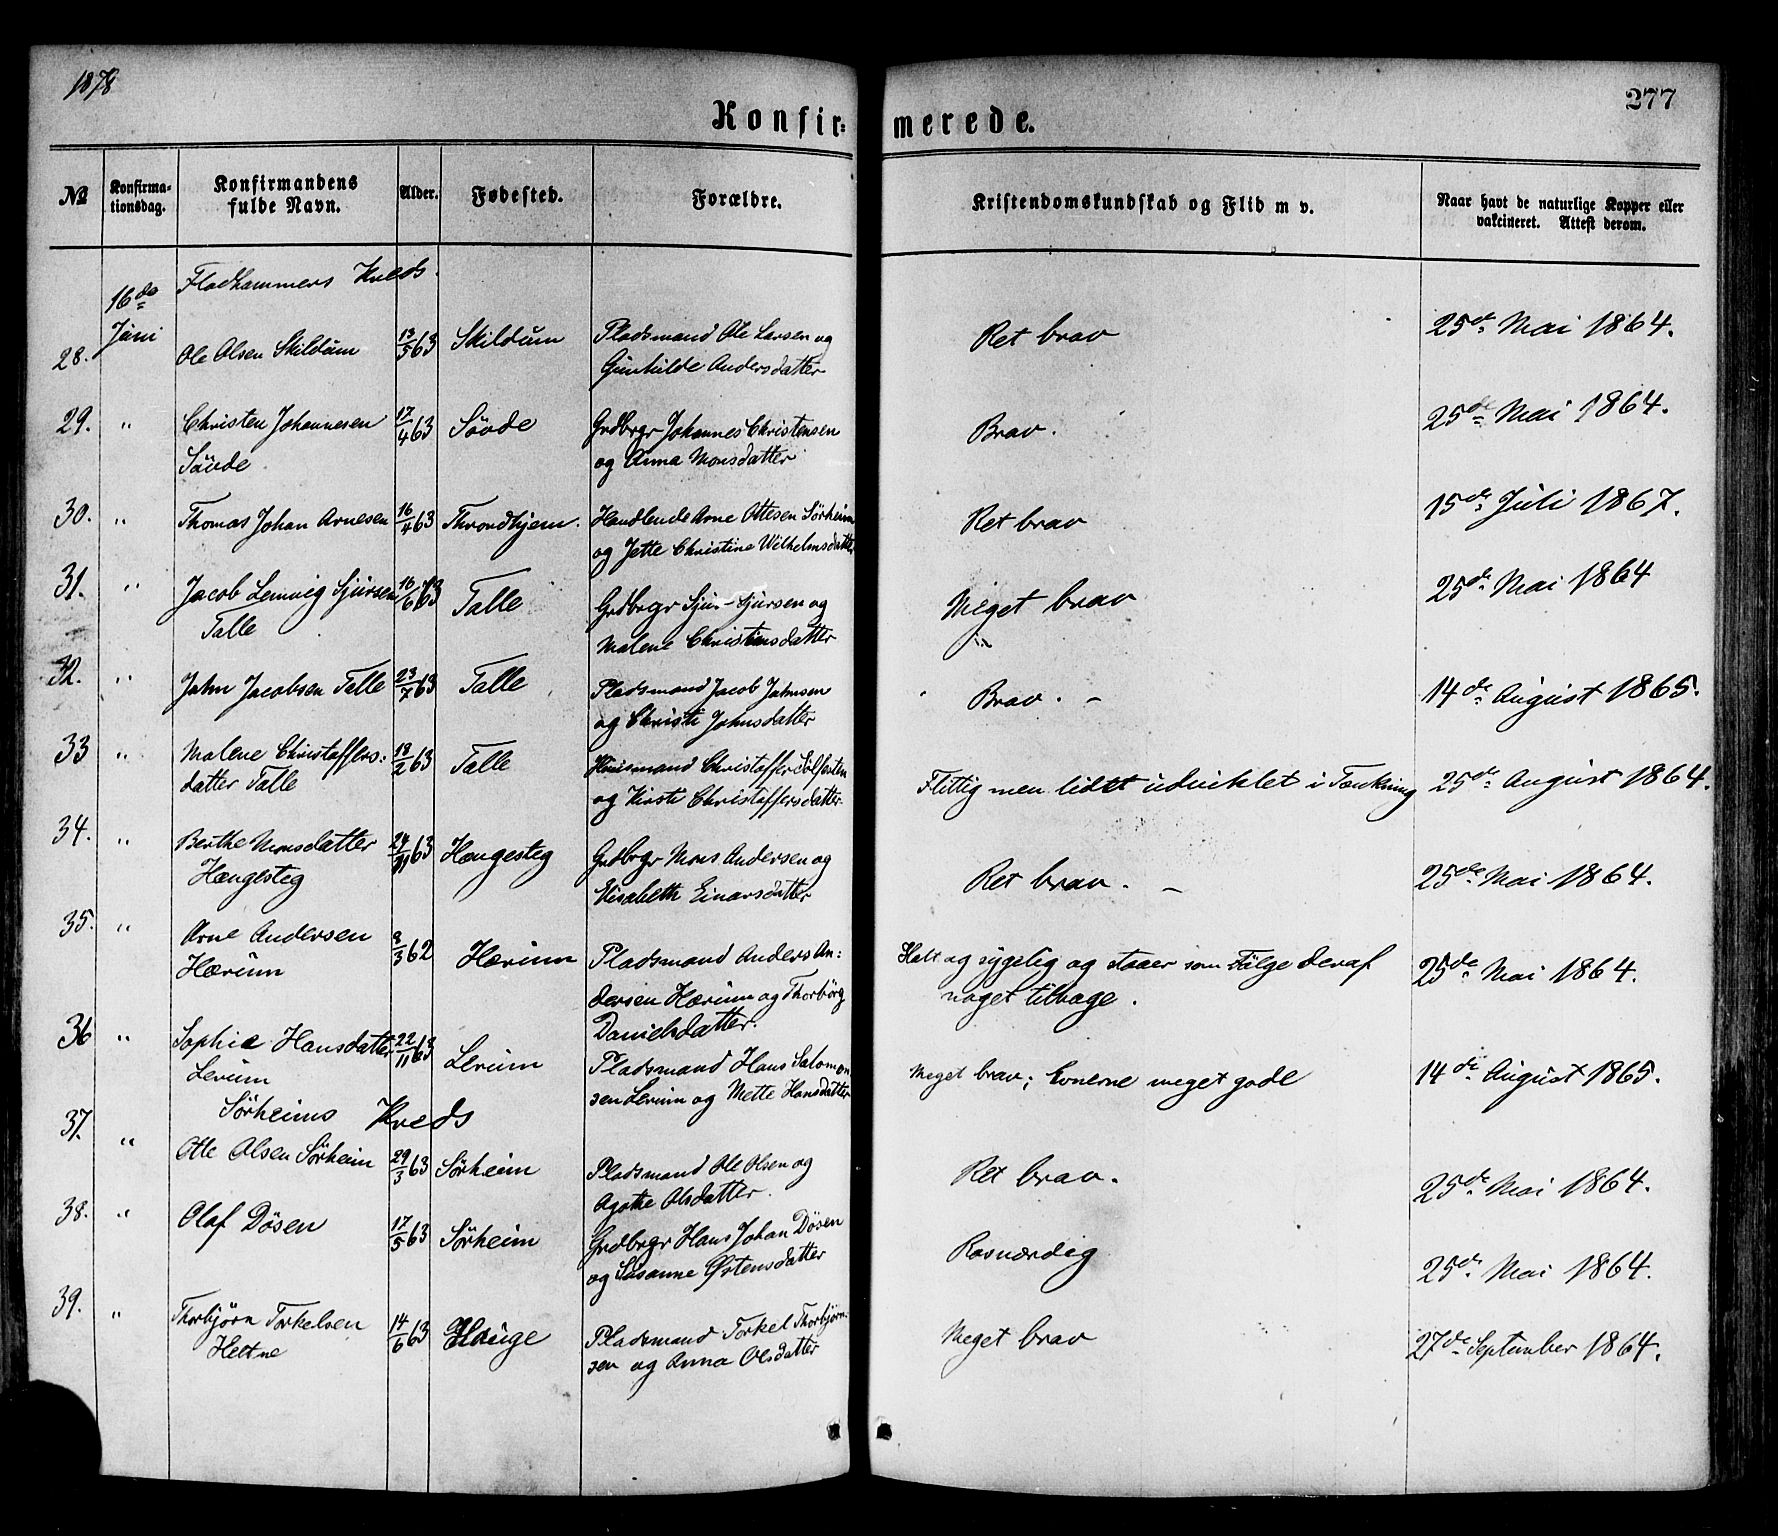 1878
277
Konfir= merede.
№ Konfirma= tionsdag. Konfirmandens fulde Navn. Alder. Fødested. Forældre. Kristendomskundskab og Flid m v. Naar havt de naturlige Kopper eller vakcineret. Attest derom.
16de Juni
Fladhammers Kreds.
28. Ole Olsen Skildum 13/5 63 Skildum Pladsmand Ole Larsen og Ret brav 25de Mai 1864.
Gunhilde Andersdatter
29. " Christen Johannesen 17/4 63 Søvde Grdbrgr Johannes Christensen Brav. 25de Mai 1864.
Søvde og Anna Monsdatter
30. " Thomas Johan Arnesen 16/4 63 Throndhjem. Handlende Arne Ottesen Sørheim Ret brav 15de Juli 1867.
og Jette Christine Wilhelmsdatter
31. " Jacob Lemvig Sjursen 16/6 63 Talle Grdbrgr Sjur Sjursen og Meget brav 25de Mai 1864
Talle Malene Christensdatter
32. " Jahn Jacobsen Talle 23/7 63 Talle Pladsmand Jacob Jahnsen Brav. - 14de August 1865.
og Christi Jahnsdatter
33 " Malene Christaffers= 18/2 63 Talle Huusmand Christaffer Sølfesten Flittig men lidet udviklet i Tænkning 25de August 1864.
datter Talle og Kirsti Christaffersdatter.
34. " Berthe Monsdatter 24/11 63 Hængesteg Grdbrgr Mons Andersen og Ret brav. - 25de Mai 1864.
Hængesteg Elisabeth Einarsdatter
35. " Arne Andersen 8/3 62 Hærum Pladsmand Anders An= Halt og sygelig og staaer som Følge deraf 25de Mai 1864.
Hærum dersen Hærum og Thorbørg noget tilbage.
Danielsdatter.
36 " Sophie Hansdatter 22/11 63 Lerum Pladsmand Hans Salomon Meget brav; Evnerne meget gode 14de August 1865.
Lerum sen Lerum og Mette Hansdatter
Sørheims Kreds
37. " Otte Olsen Sørheim 29/3 63 Sørheim Pladsmand Ole Olsen og Ret brav. 25de Mai 1864.
Agathe Olsdatter.
38. " Olaf Døsen 17/5 63 Sørheim Grdbrgr Hans Johan Døsen Rosværdig 25de Mai 1864.
og Susanne Østensdatter
39. " Thorbjørn Torkelsen 14/6 63 Hauge Pladsmand Torkel Thorbjørn= Meget brav 27de September 1864.
Hettne sen og Anna Olsdatter